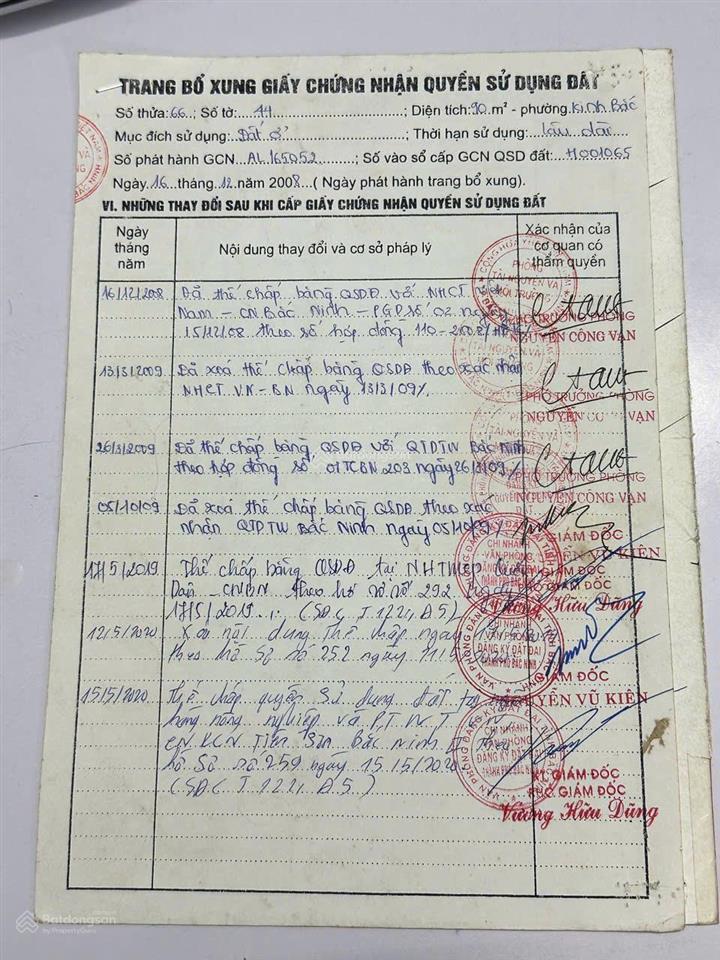 TRANG BỔ XUNG GIẤY CHỨNG NHẬN QUYỀN SỬ DỤNG ĐẤT
Số thửa: 66 ; Số tờ: 44 ; Diện tích: 90 m² - phường Kinh Bắc
Mục đích sử dụng: Đất ở ; Thời hạn sử dụng: Lâu dài
Số phát hành GCN AL 165052 ; Số vào sổ cấp GCN QSD đất: H001065
Ngày 16 tháng 12 năm 2008 ( Ngày phát hành trang bổ xung).
VI. NHỮNG THAY ĐỔI SAU KHI CẤP GIẤY CHỨNG NHẬN QUYỀN SỬ DỤNG ĐẤT
Ngày tháng năm
Nội dung thay đổi và cơ sở pháp lý
Xác nhận của cơ quan có thẩm quyền
16/12/2008 Đã thế chấp bằng QSDĐ với NHCT
Nam - CN Bắc Ninh - PGD số 02 ngày
15/12/08 theo số hợp đồng 110-2008/
PHÒNG TÀI NGUYÊN VÀ MÔI TRƯỜNG
PHÓ TRƯỞNG PHÒNG
NGUYỄN CÔNG VẠN
13/3/2009 Đã xoá thế chấp bằng QSDĐ theo xác nhận
NHCT VN - BN ngày 13/3/09
PHÓ TRƯỞNG PHÒNG
NGUYỄN CÔNG VẠN
26/3/2009 Đã thế chấp bằng QSDĐ với QTDTW Bắc Ninh
theo hợp đồng số 01TCBN 203 ngày 26/3/09
NGUYỄN CÔNG VẠN
05/10/09 Đã xoá thế chấp bằng QSDĐ theo xác
nhận QTDTW Bắc Ninh ngày 05/10/09
GIÁM ĐỐC
NGUYỄN VŨ KIÊN
17/5/2019 Thế chấp bằng QSDĐ tại NHTMCP
Dân - CNBN theo hồ sơ số 292
17/5/2019. (SĐC T.1221, Đ5)
CHI NHÁNH VĂN PHÒNG ĐĂNG KÝ ĐẤT ĐAI THÀNH PHỐ BẮC NINH
GIÁM ĐỐC
PHÓ GIÁM ĐỐC
Vương Hữu Dũng
12/5/2020 Xóa nội dung thế chấp ngày
theo hồ sơ số 252 ngày
CHI NHÁNH VĂN PHÒNG ĐĂNG KÝ ĐẤT ĐAI THÀNH PHỐ BẮC NINH
GIÁM ĐỐC
NGUYỄN VŨ KIÊN
15/5/2020 Thế chấp quyền sử dụng đất tại
hàng nông nghiệp và P.T.N.T
CN KCN Tiên Sơn Bắc Ninh II theo
hồ sơ số 259 ngày 15/5/2020
(SĐC T.1221, Đ5)
CHI NHÁNH VĂN PHÒNG ĐĂNG KÝ ĐẤT ĐAI THÀNH PHỐ BẮC NINH
KT. GIÁM ĐỐC
PHÓ GIÁM ĐỐC
Vương Hữu Dũng
Batdongsan
by PropertyGuru